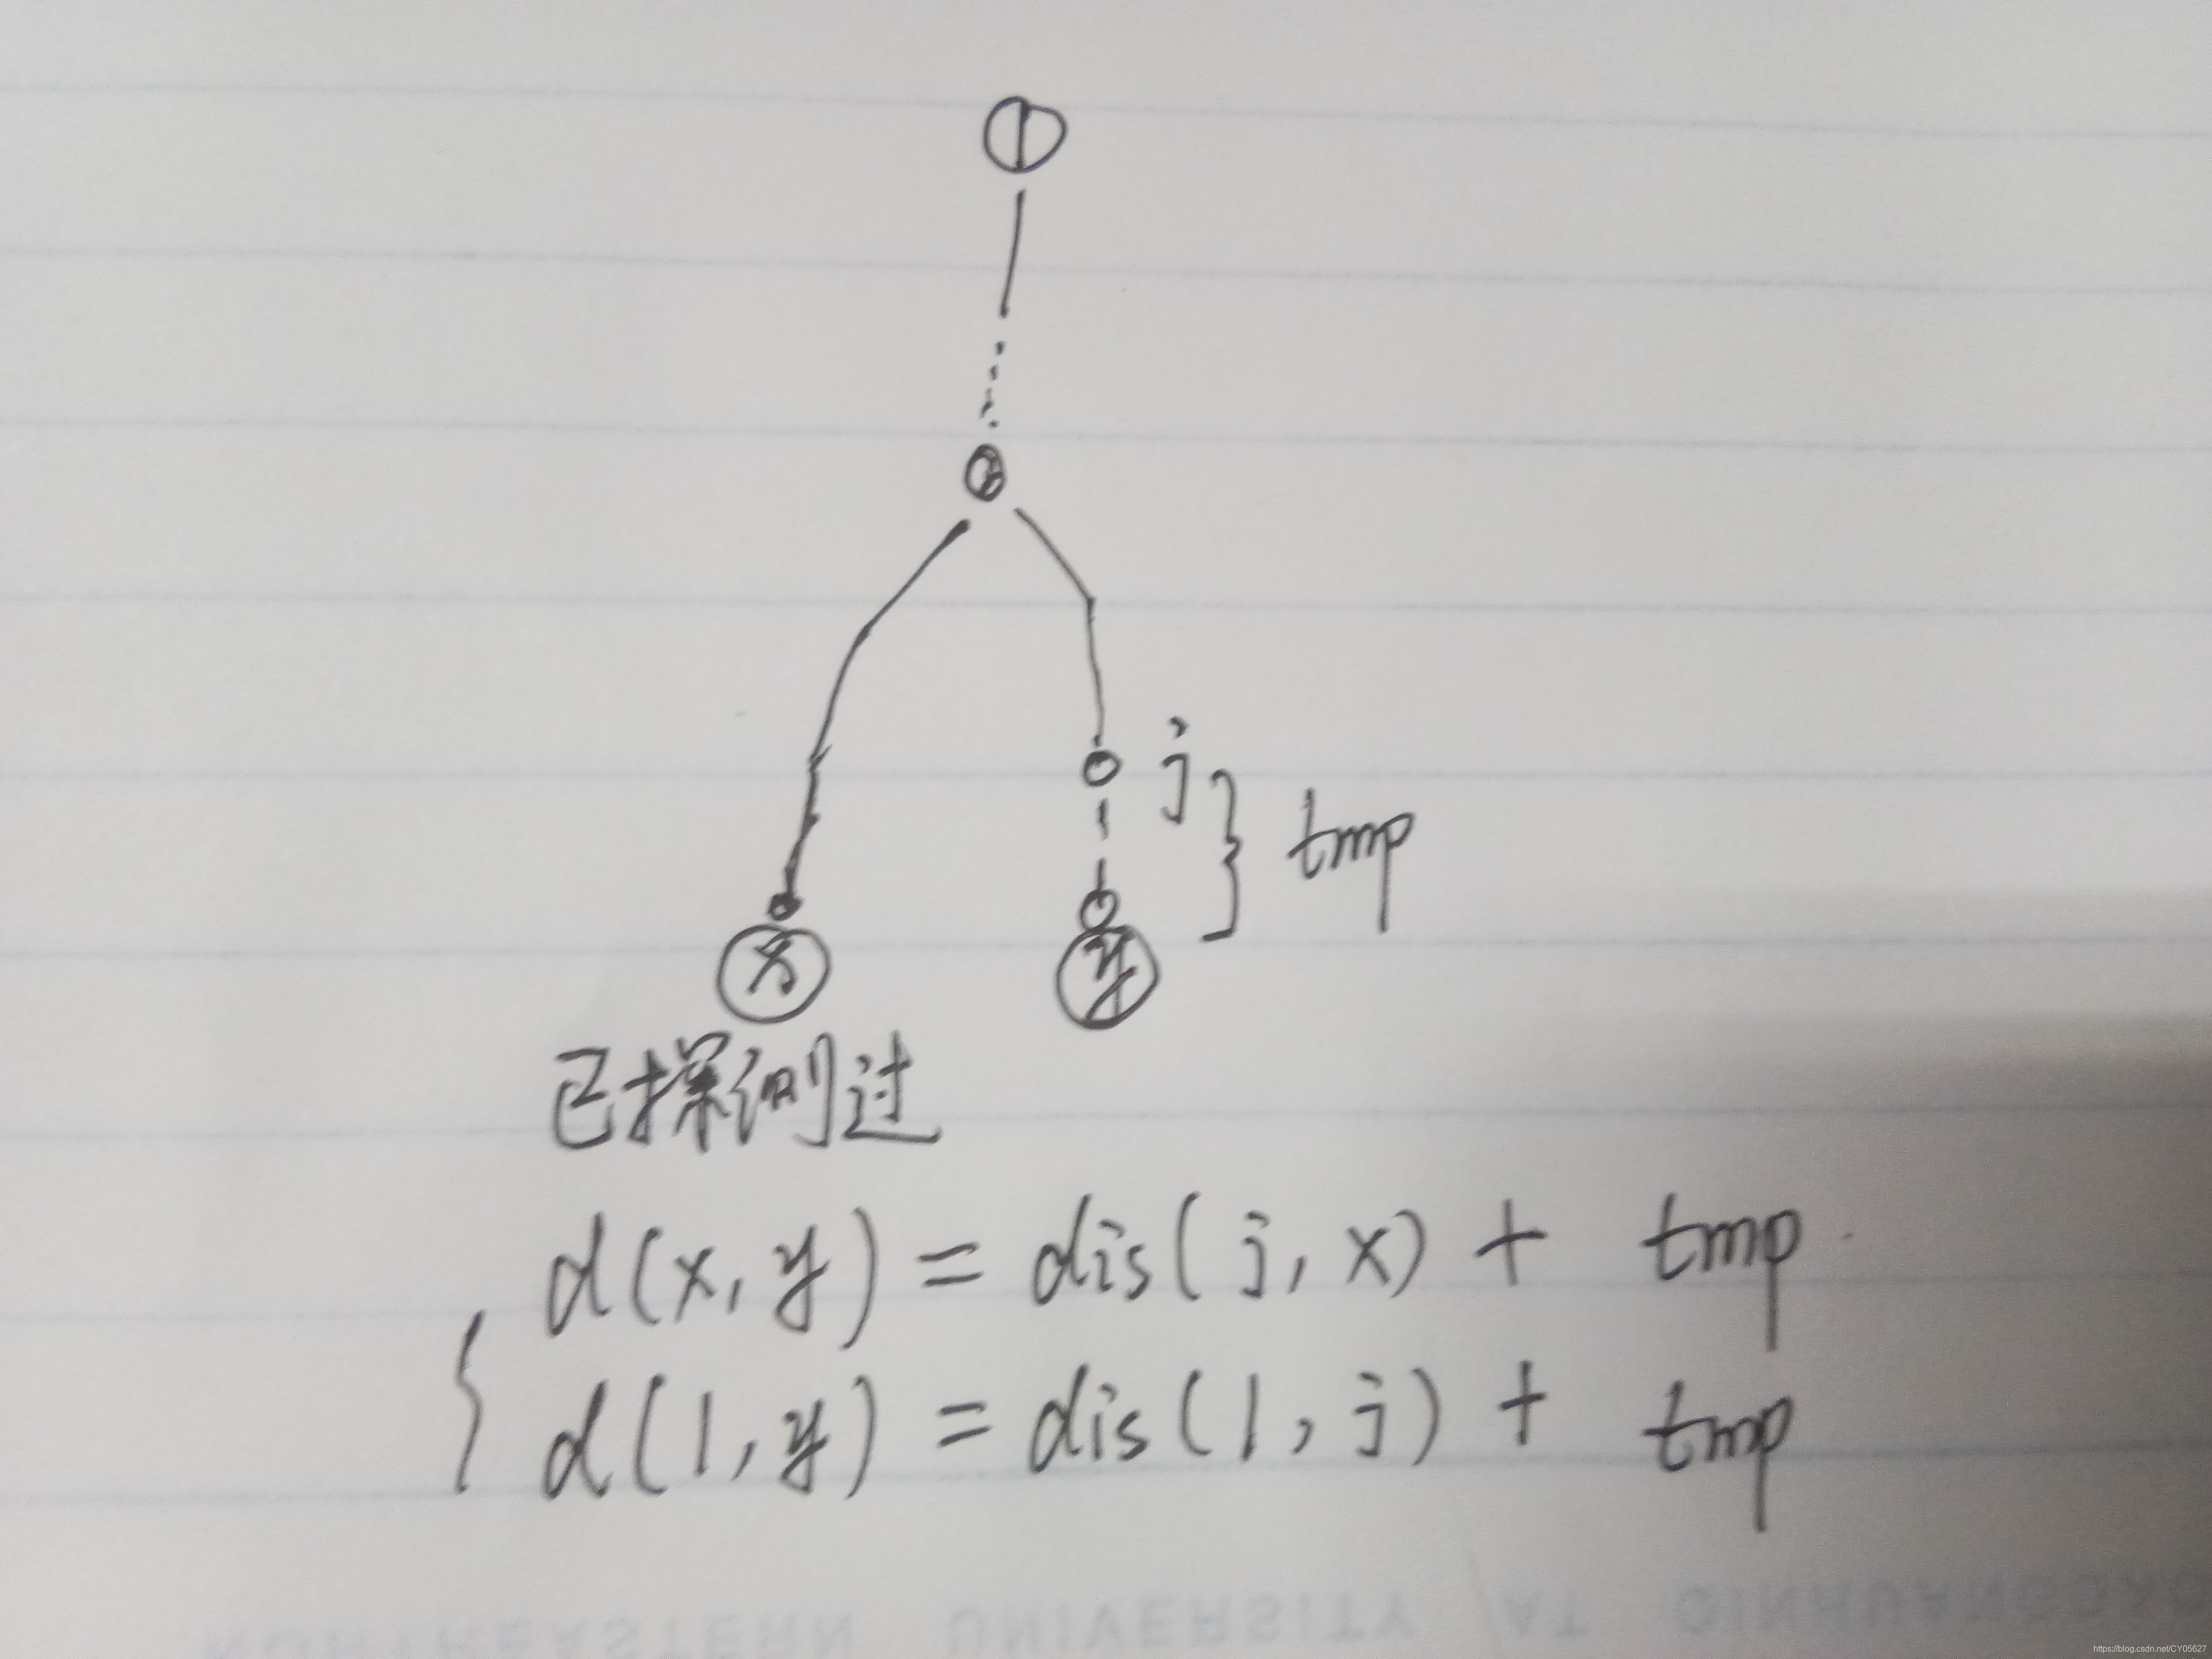 1
j
tmp
x
y
已探测过
d(x, y) = dis(j, x) + tmp
d(1, y) = dis(1, j) + tmp
NORTHEASTERN UNIVERSITY AT QINHUANGDAO
https://blog.csdn.net/CY05627